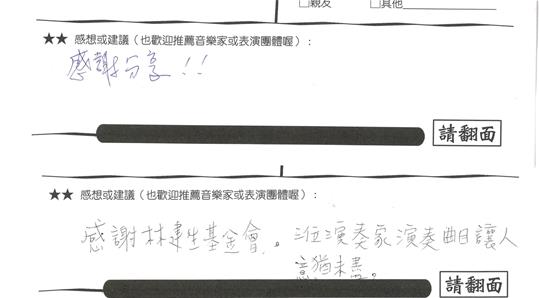 □親友 □其他
★★ 感想或建議（也歡迎推薦音樂家或表演團體喔）：
感謝分享！！
請翻面
★★ 感想或建議（也歡迎推薦音樂家或表演團體喔）：
感謝林建生基金會。三位演奏家演奏曲目讓人
意猶未盡。
請翻面